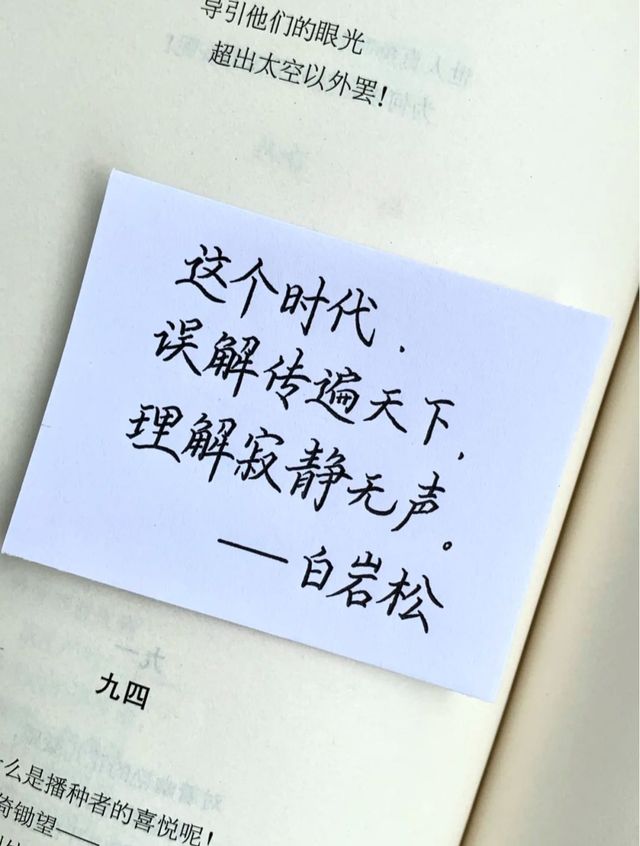 导引他们的眼光
超出太空以外罢！
这个时代，
误解传遍天下，
理解寂静无声。
——白岩松
九四
么是播种者的喜悦呢！
锄望——